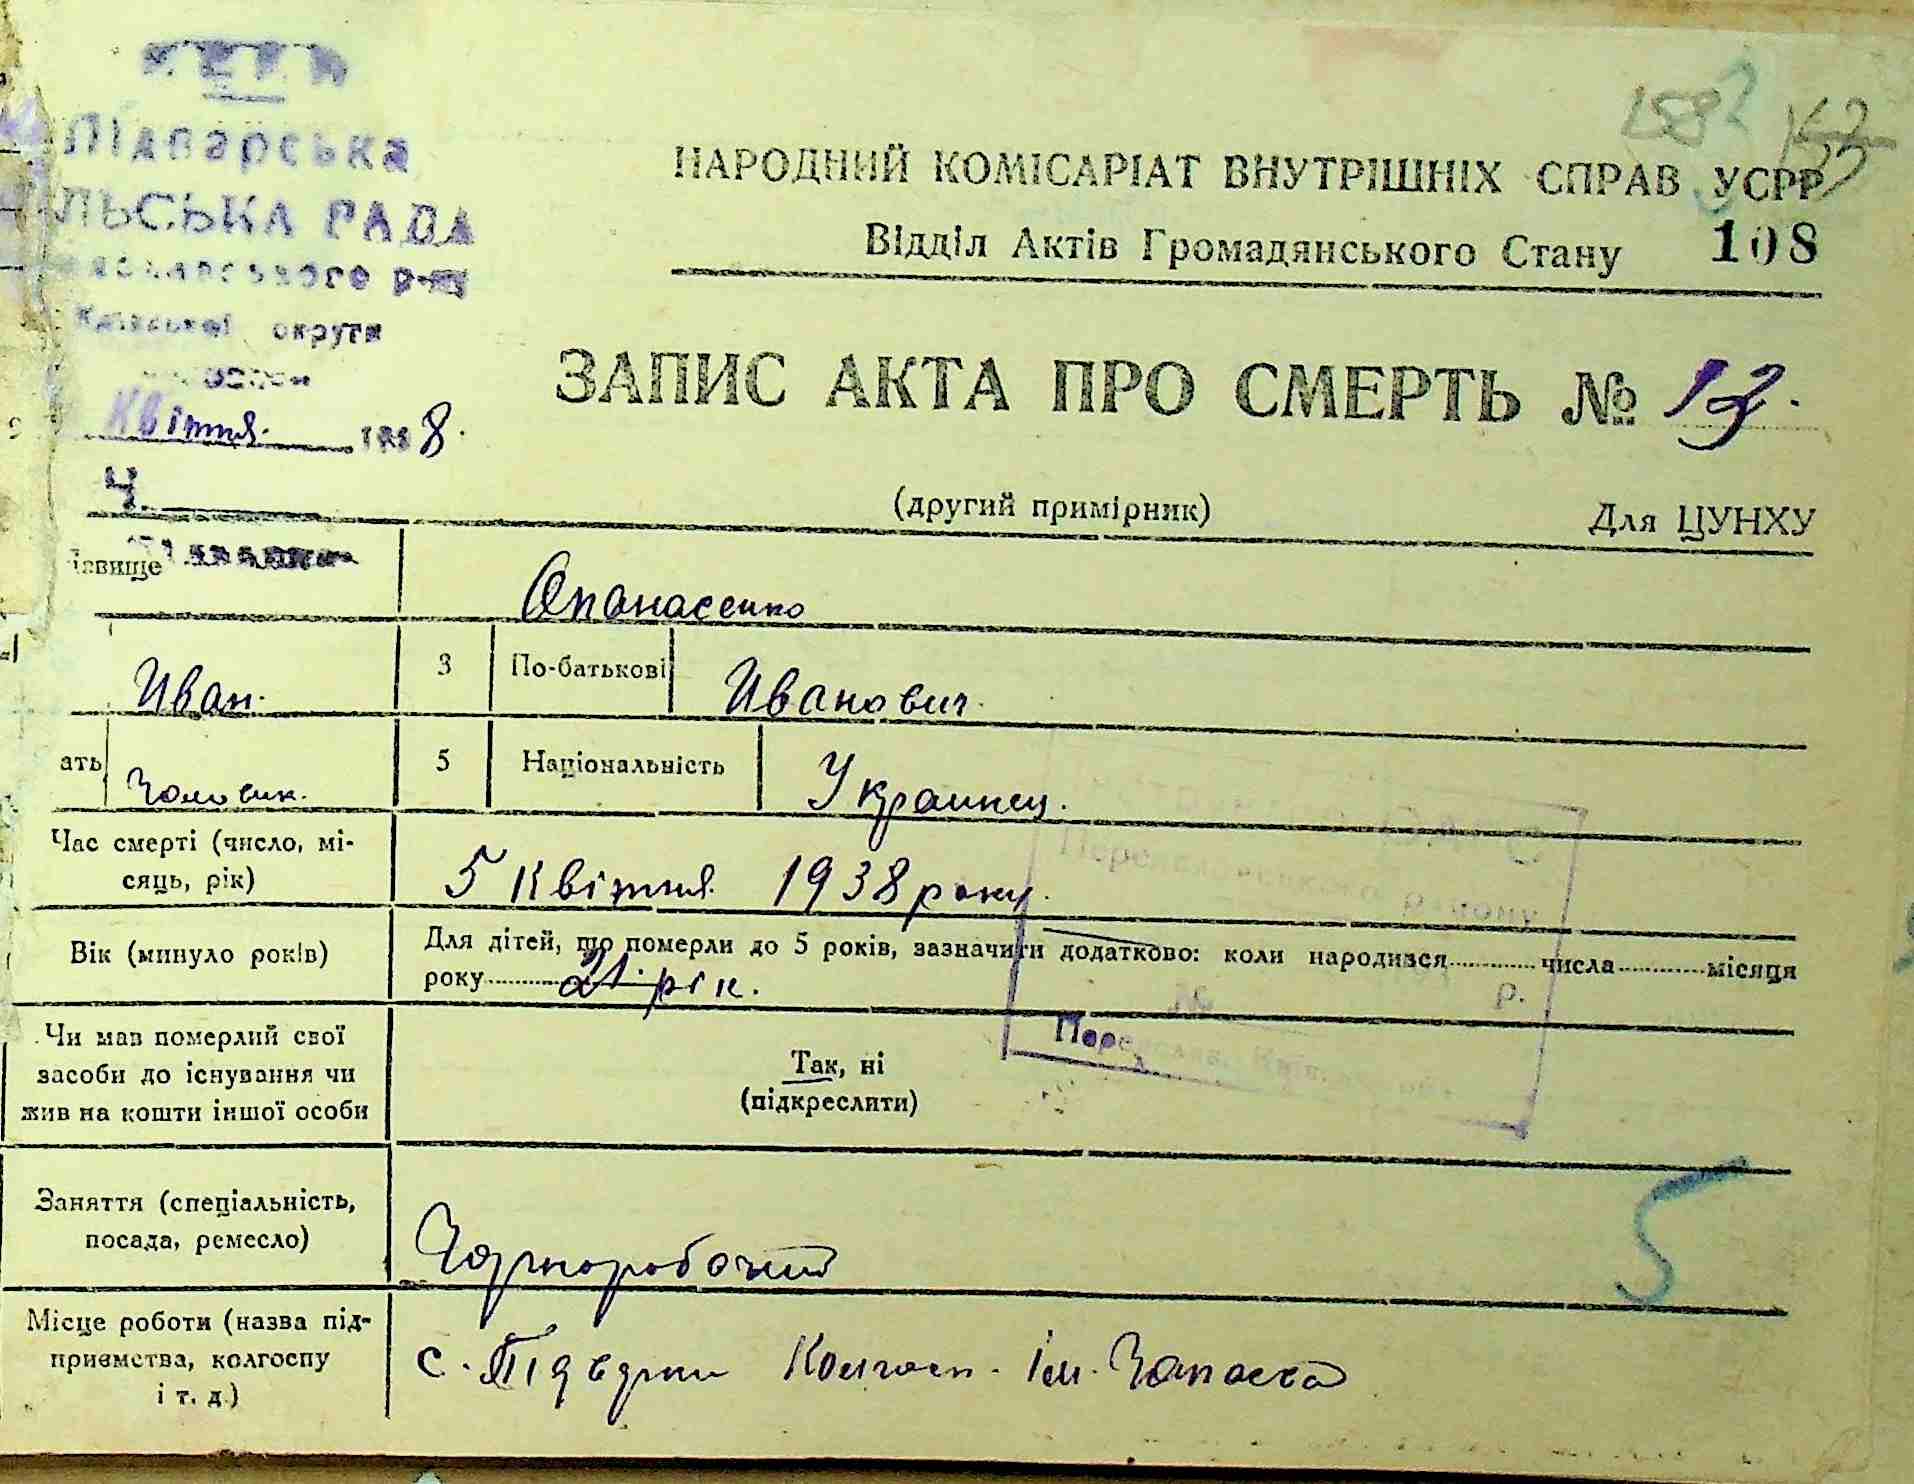 Підварська
ЛЬСЬКА РАДА
округи
Квітня. 193 8.
Ч.
158
НАРОДНИЙ КОМІСАРІАТ ВНУТРІШНІХ СПРАВ УСРР
Відділ Актів Громадянського Стану 108
ЗАПИС АКТА ПРО СМЕРТЬ № 13.
(другий примірник) Для ЦУНХУ
ізвище Опанасенко
Иван. 3 По-батькові Иванович.
ать Чоловик. 5 Національність Украинец.
Час смерті (число, мі-
сяць, рік) 5 Квітня 1938 року.
Вік (минуло років) Для дітей, що померли до 5 років, зазначити додатково: коли народився числа місяця
року 21. рік.
Чи мав померлий свої
засоби до існування чи
жив на кошти іншої особи
Так, ні
(підкреслити)
Переяславського району
№ р.
Заняття (спеціальність,
посада, ремесло) Чорноробочий
5
Місце роботи (назва під-
приємства, колгоспу
і т. д.)
с. Підварки Колгосп. ім. Чапаєва